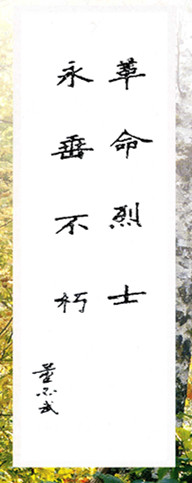 革命烈士
永垂不朽
董必武